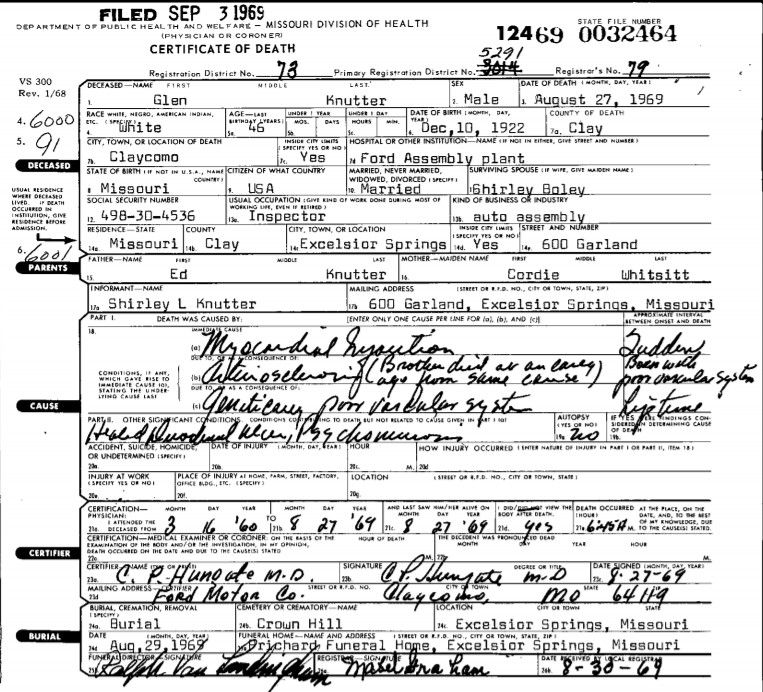 FILED SEP 3 1969
DEPARTMENT OF PUBLIC HEALTH AND WELFARE — MISSOURI DIVISION OF HEALTH
STATE FILE NUMBER
(PHYSICIAN OR CORONER)
CERTIFICATE OF DEATH
12469 0032464
5291
Registration District No. 73 Primary Registration District No. 3014 Registrar's No. 79
VS 300
Rev. 1/68
DECEASED—NAME FIRST MIDDLE LAST SEX DATE OF DEATH (MONTH, DAY, YEAR)
1. Glen Knutter 2. Male 3. August 27, 1969
4. 6000
RACE WHITE, NEGRO, AMERICAN INDIAN, ETC. (SPECIFY) AGE—LAST BIRTHDAY (YEARS) UNDER 1 YEAR MOS. DAYS UNDER 1 DAY HOURS MIN. DATE OF BIRTH (MONTH, DAY, YEAR) COUNTY OF DEATH
4. White 5a. 46 5b. 5c. 6. Dec,10, 1922 7a. Clay
5. 91
CITY, TOWN, OR LOCATION OF DEATH INSIDE CITY LIMITS (SPECIFY YES OR NO) HOSPITAL OR OTHER INSTITUTION—NAME (IF NOT IN EITHER, GIVE STREET AND NUMBER)
7b. Claycomo 7c. Yes 7d Ford Assembly plant
DECEASED
STATE OF BIRTH (IF NOT IN U.S.A., NAME COUNTRY) CITIZEN OF WHAT COUNTRY MARRIED, NEVER MARRIED, WIDOWED, DIVORCED (SPECIFY) SURVIVING SPOUSE (IF WIFE, GIVE MAIDEN NAME)
8 Missouri 9. USA 10. Married Shirley Boley
USUAL RESIDENCE WHERE DECEASED LIVED. IF DEATH OCCURRED IN INSTITUTION, GIVE RESIDENCE BEFORE ADMISSION.
SOCIAL SECURITY NUMBER USUAL OCCUPATION (GIVE KIND OF WORK DONE DURING MOST OF WORKING LIFE, EVEN IF RETIRED) KIND OF BUSINESS OR INDUSTRY
12. 498-30-4536 13a. Inspector 13b. auto assembly
RESIDENCE—STATE COUNTY CITY, TOWN, OR LOCATION INSIDE CITY LIMITS (SPECIFY YES OR NO) STREET AND NUMBER
14a. Missouri 14b. Clay 14c Excelsior Springs 14d. Yes 14e. 600 Garland
6. 6001
PARENTS
FATHER—NAME FIRST MIDDLE LAST MOTHER—MAIDEN NAME FIRST MIDDLE LAST
15. Ed Knutter 16. Cordie Whitsitt
INFORMANT—NAME MAILING ADDRESS (STREET OR R.F.D. NO., CITY OR TOWN, STATE, ZIP)
17a Shirley L Knutter 17b 600 Garland, Excelsior Springs, Missouri
PART I. DEATH WAS CAUSED BY: [ENTER ONLY ONE CAUSE PER LINE FOR (a), (b), AND (c)] APPROXIMATE INTERVAL BETWEEN ONSET AND DEATH
18. IMMEDIATE CAUSE
(a) Myocardial Sudden
DUE TO, OR AS A CONSEQUENCE OF:
CONDITIONS, IF ANY, WHICH GAVE RISE TO IMMEDIATE CAUSE (a), STATING THE UNDERLYING CAUSE LAST
(b) (Brother died at an early age from same cause) Born with poor vascular system
DUE TO, OR AS A CONSEQUENCE OF:
CAUSE
(c) poor vascular system life time
PART II. OTHER SIGNIFICANT CONDITIONS CONDITIONS CONTRIBUTING TO DEATH BUT NOT RELATED TO CAUSE GIVEN IN PART I (a) AUTOPSY (YES OR NO) IF YES WERE FINDINGS CONSIDERED IN DETERMINING CAUSE OF DEATH
Healed Duodenal Ulcer, 19a. no 19b.
ACCIDENT, SUICIDE, HOMICIDE, OR UNDETERMINED (SPECIFY) DATE OF INJURY (MONTH, DAY, YEAR) HOUR HOW INJURY OCCURRED (ENTER NATURE OF INJURY IN PART I OR PART II, ITEM 18)
20a. 20b. 20c. M. 20d
INJURY AT WORK (SPECIFY YES OR NO) PLACE OF INJURY AT HOME, FARM, STREET, FACTORY, OFFICE BLDG., ETC. (SPECIFY) LOCATION (STREET OR R.F.D. NO., CITY OR TOWN, STATE)
20e. 20f. 20g.
CERTIFICATION—PHYSICIAN: MONTH DAY YEAR MONTH DAY YEAR AND LAST SAW HIM/HER ALIVE ON MONTH DAY YEAR I DID/DID NOT VIEW THE BODY AFTER DEATH. DEATH OCCURRED (HOUR) AT THE PLACE, ON THE DATE, AND, TO THE BEST OF MY KNOWLEDGE, DUE TO THE CAUSE(S) STATED.
21a. I ATTENDED THE DECEASED FROM 3 16 '60 21b. 8 27 '69 21c. 8 27 '69 21d. yes 21e. 6:45A M.
CERTIFICATION—MEDICAL EXAMINER OR CORONER: ON THE BASIS OF THE EXAMINATION OF THE BODY AND/OR THE INVESTIGATION, IN MY OPINION, DEATH OCCURRED ON THE DATE AND DUE TO THE CAUSE(S) STATED HOUR OF DEATH THE DECEDENT WAS PRONOUNCED DEAD MONTH DAY YEAR HOUR
22a. M.
CERTIFIER
CERTIFIER—NAME SIGNATURE DEGREE OR TITLE DATE SIGNED (MONTH, DAY, YEAR)
23a. C. P. Hungate M.D. 23b. C.P. Hungate M.D 23c. 8-27-69
MAILING ADDRESS—CERTIFIER STREET OR R.F.D. NO. CITY OR TOWN STATE
23d Ford Motor Co. Claycomo, MO 64119
BURIAL, CREMATION, REMOVAL (SPECIFY) CEMETERY OR CREMATORY—NAME LOCATION CITY OR TOWN STATE
24a. Burial 24b. Crown Hill 24c. Excelsior Springs, Missouri
BURIAL
DATE (MONTH, DAY, YEAR) FUNERAL HOME—NAME AND ADDRESS (STREET OR R.F.D. NO., CITY OR TOWN, STATE, ZIP)
24d Aug,29,1969 Prichard Funeral Home, Excelsior Springs, Missouri
FUNERAL DIRECTOR—SIGNATURE REGISTRAR—SIGNATURE DATE RECEIVED BY LOCAL REGISTRAR
Ralph Van Landingham Mabel Graham 26b. 8-30-69